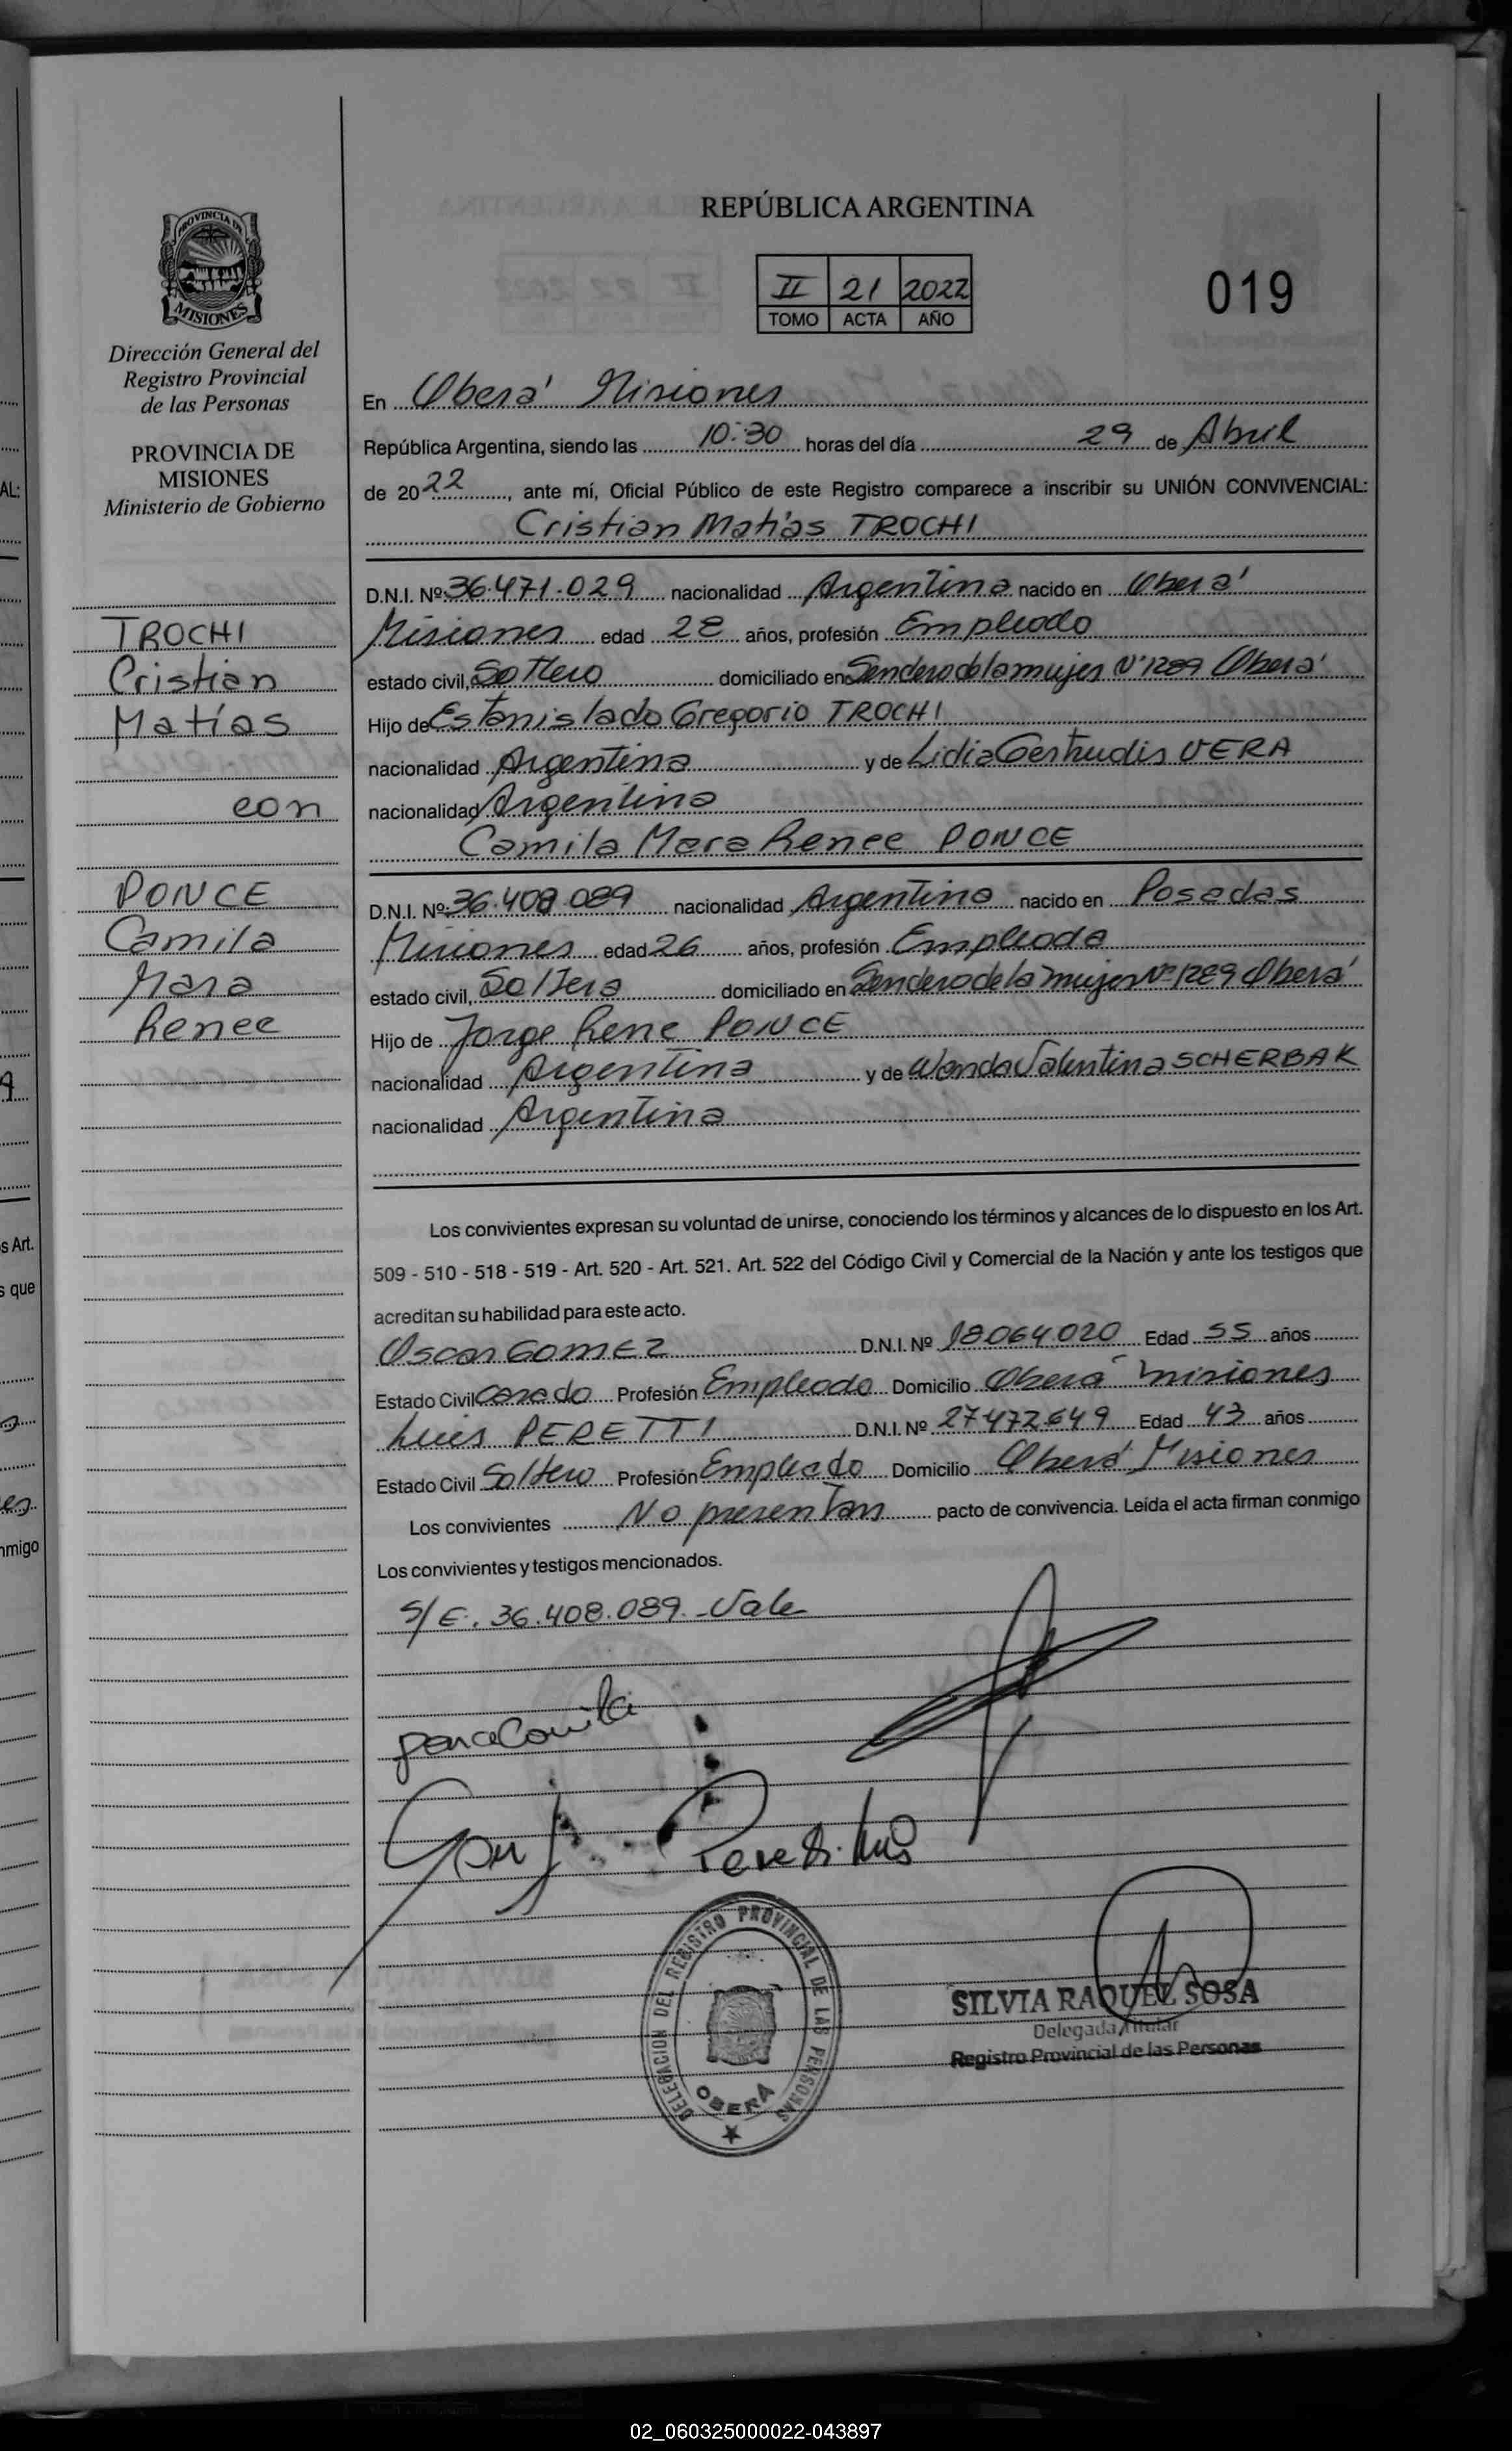 REPÚBLICA ARGENTINA
PROVINCIA DE
MISIONES
Dirección General del
Registro Provincial
de las Personas
PROVINCIA DE
MISIONES
Ministerio de Gobierno
II 21 2022
TOMO ACTA AÑO
019
En Oberá Misiones
República Argentina, siendo las 10:30 horas del día 29 de Abril
de 2022, ante mí, Oficial Público de este Registro comparece a inscribir su UNIÓN CONVIVENCIAL:
Cristian Matías TROCHI
D.N.I. Nº 36.471.029 nacionalidad Argentina nacido en Oberá
Misiones edad 28 años, profesión Empleado
estado civil, Soltero domiciliado en Sendero de la mujer Nº 1289 Oberá
Hijo de Estanislado Gregorio TROCHI
nacionalidad Argentina y de Lidia Gertrudis VERA
nacionalidad Argentina
Camila Mara Renee PONCE
D.N.I. Nº 36.408.089 nacionalidad Argentina nacido en Posadas
Misiones edad 26 años, profesión Empleada
estado civil, Soltera domiciliado en Sendero de la mujer Nº 1289 Oberá
Hijo de Jorge Rene PONCE
nacionalidad Argentina y de Wanda Valentina SCHERBAK
nacionalidad Argentina
TROCHI
Cristian
Matías
con
PONCE
Camila
Mara
Renee
Los convivientes expresan su voluntad de unirse, conociendo los términos y alcances de lo dispuesto en los Art.
509 - 510 - 518 - 519 - Art. 520 - Art. 521. Art. 522 del Código Civil y Comercial de la Nación y ante los testigos que
acreditan su habilidad para este acto.
Oscar GOMEZ D.N.I. Nº 18064020 Edad 55 años
Estado Civil Casado Profesión Empleado Domicilio Oberá Misiones
Luis PERETTI D.N.I. Nº 27472649 Edad 43 años
Estado Civil Soltero Profesión Empleado Domicilio Oberá Misiones
Los convivientes No presentan pacto de convivencia. Leída el acta firman conmigo
Los convivientes y testigos mencionados.
S/E. 36.408.089. Vale
Ponce Camila
Peretti Luis
DELEGACION DEL REGISTRO PROVINCIAL DE LAS PERSONAS
OBERÁ
SILVIA RAQUEL SOSA
Delegada Titular
Registro Provincial de las Personas
AL:
s Art.
s que
nmigo
02_060325000022-043897